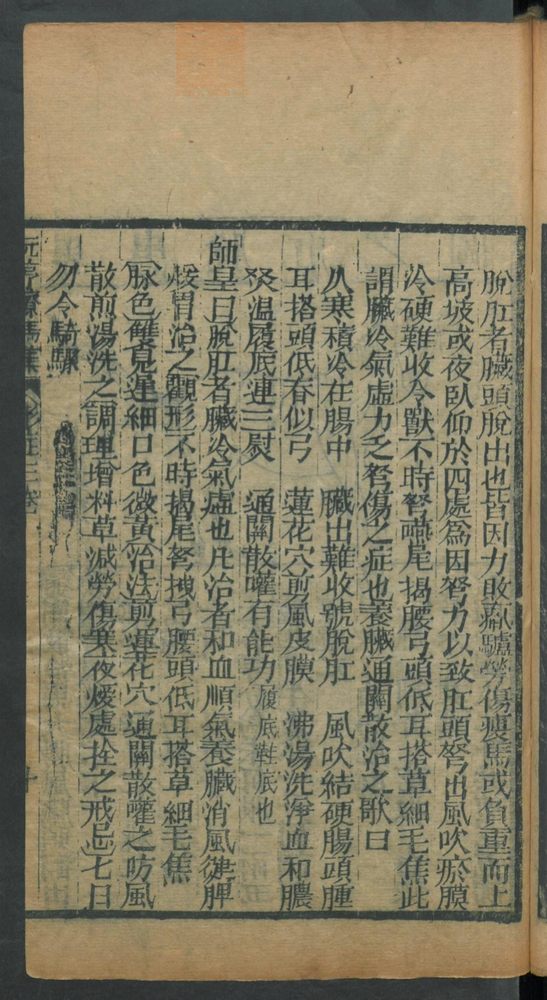 脫肛者臟頭脫出也皆因力敗羸驢勞傷瘦馬或負重而上
高坡或夜臥仰於凹處爲因努力以致肛頭努出風吹瘀膜
冷硬難收令獸不時努嚥尾揭腰弓頭低耳搭草細毛焦此
謂臟冷氣虛力乏努傷之症也養臟通關散治之歌曰
久寒積冷在腸中　臟出難收號脫肛　風吹結硬腸頭腫
耳搭頭低脊似弓　蓮花穴剪風皮膜　沸湯洗淨血和膿
炙温履底連三熨　通關散嚾有能功 履底鞋底也
師皇曰脫肛者臟冷氣虛也凡治者和血順氣養臟消風健脾
煖胃治之觀形不時揭尾努拽弓腰頭低耳搭草細毛焦
脉色雙鳧遲細口色微黃治法剪蓮花穴通關散嚾之防風
散煎湯洗之調理增料草減勞傷寒夜煖處拴之戒忌七日
勿令騎驟
元亨療馬集 卷三